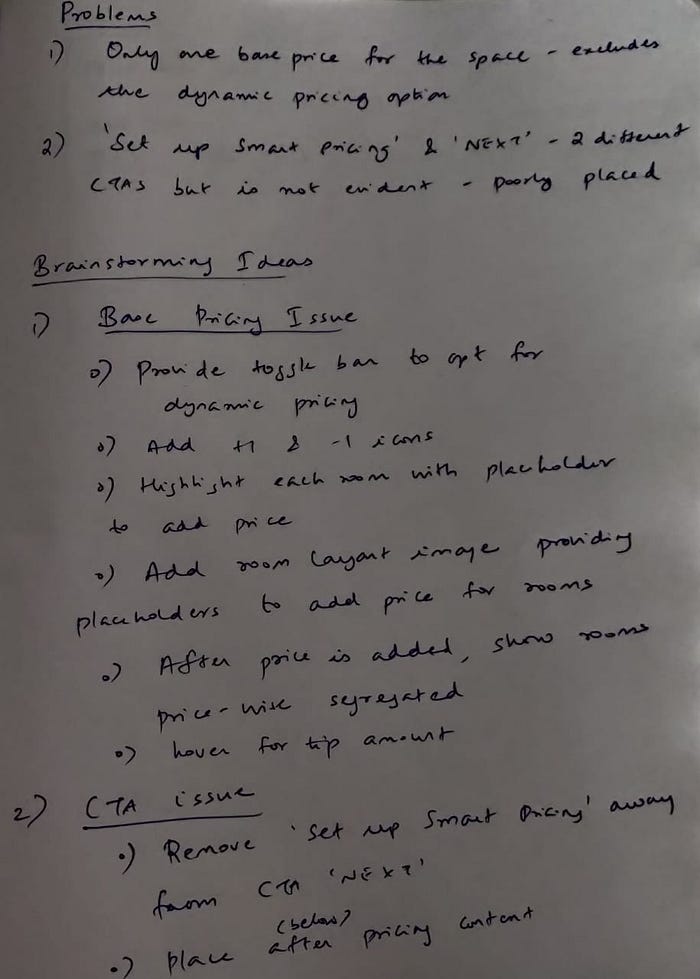 Problems
1) Only one base price for the space - excludes
the dynamic pricing option
2) 'Set up Smart Pricing' & 'NEXT' - 2 different
CTAs but is not evident - poorly placed
Brainstorming Ideas
1) Base Pricing Issue
o) Provide toggle bar to opt for
dynamic pricing
o) Add +1 & -1 icons
o) Highlight each room with placeholder
to add price
o) Add room layout image providing
placeholders to add price for rooms
o) After price is added, show rooms
price-wise segregated
o) hover for tip amount
2) CTA issue
o) Remove 'Set up Smart Pricing' away
from CTA 'NEXT'
(below)
o) Place after pricing content